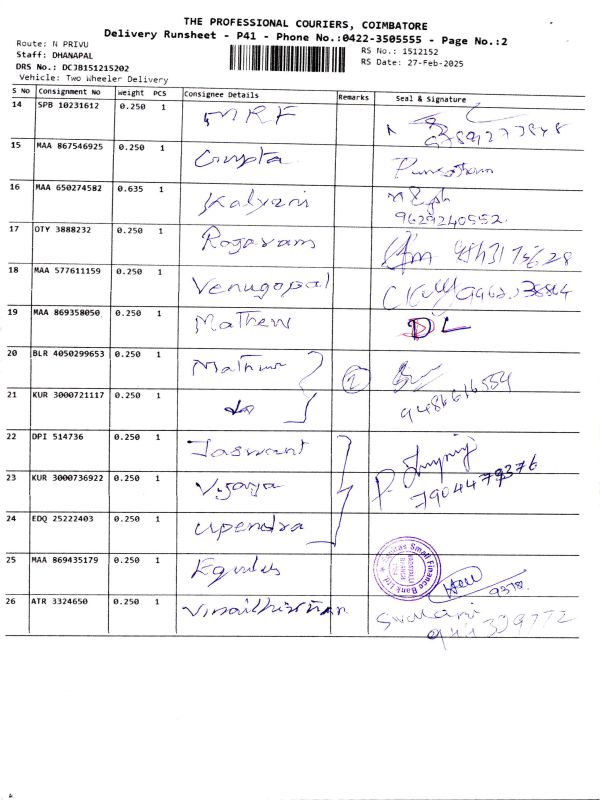 THE PROFESSIONAL COURIERS, COIMBATORE
Delivery Runsheet - P41 - Phone No.:0422-3505555 - Page No.:2
Route: N PRIVU
Staff: DHANAPAL
DRS No.: DCJB151215202
Vehicle: Two Wheeler Delivery
RS No.: 1512152
RS Date: 27-Feb-2025
S No Consignment No Weight PCS Consignee Details Remarks Seal & Signature
14 SPB 10231612 0.250 1 MRF
15 MAA 867546925 0.250 1 Gupta
16 MAA 650274582 0.635 1 Kalyani
9629240552.
17 OTY 3888232 0.250 1 Rogaram
18 MAA 577611159 0.250 1 Venugopal
19 MAA 869358050 0.250 1 Mathew DL
20 BLR 4050299653 0.250 1 Mathur 2
21 KUR 3000721117 0.250 1 do
9486616554
22 DPI 514736 0.250 1 Jaswant
23 KUR 3000736922 0.250 1 Vijaya
7904479376
24 EDQ 25222403 0.250 1 Upendra
25 MAA 869435179 0.250 1
Small Finance Bank Ltd
26 ATR 3324650 0.250 1